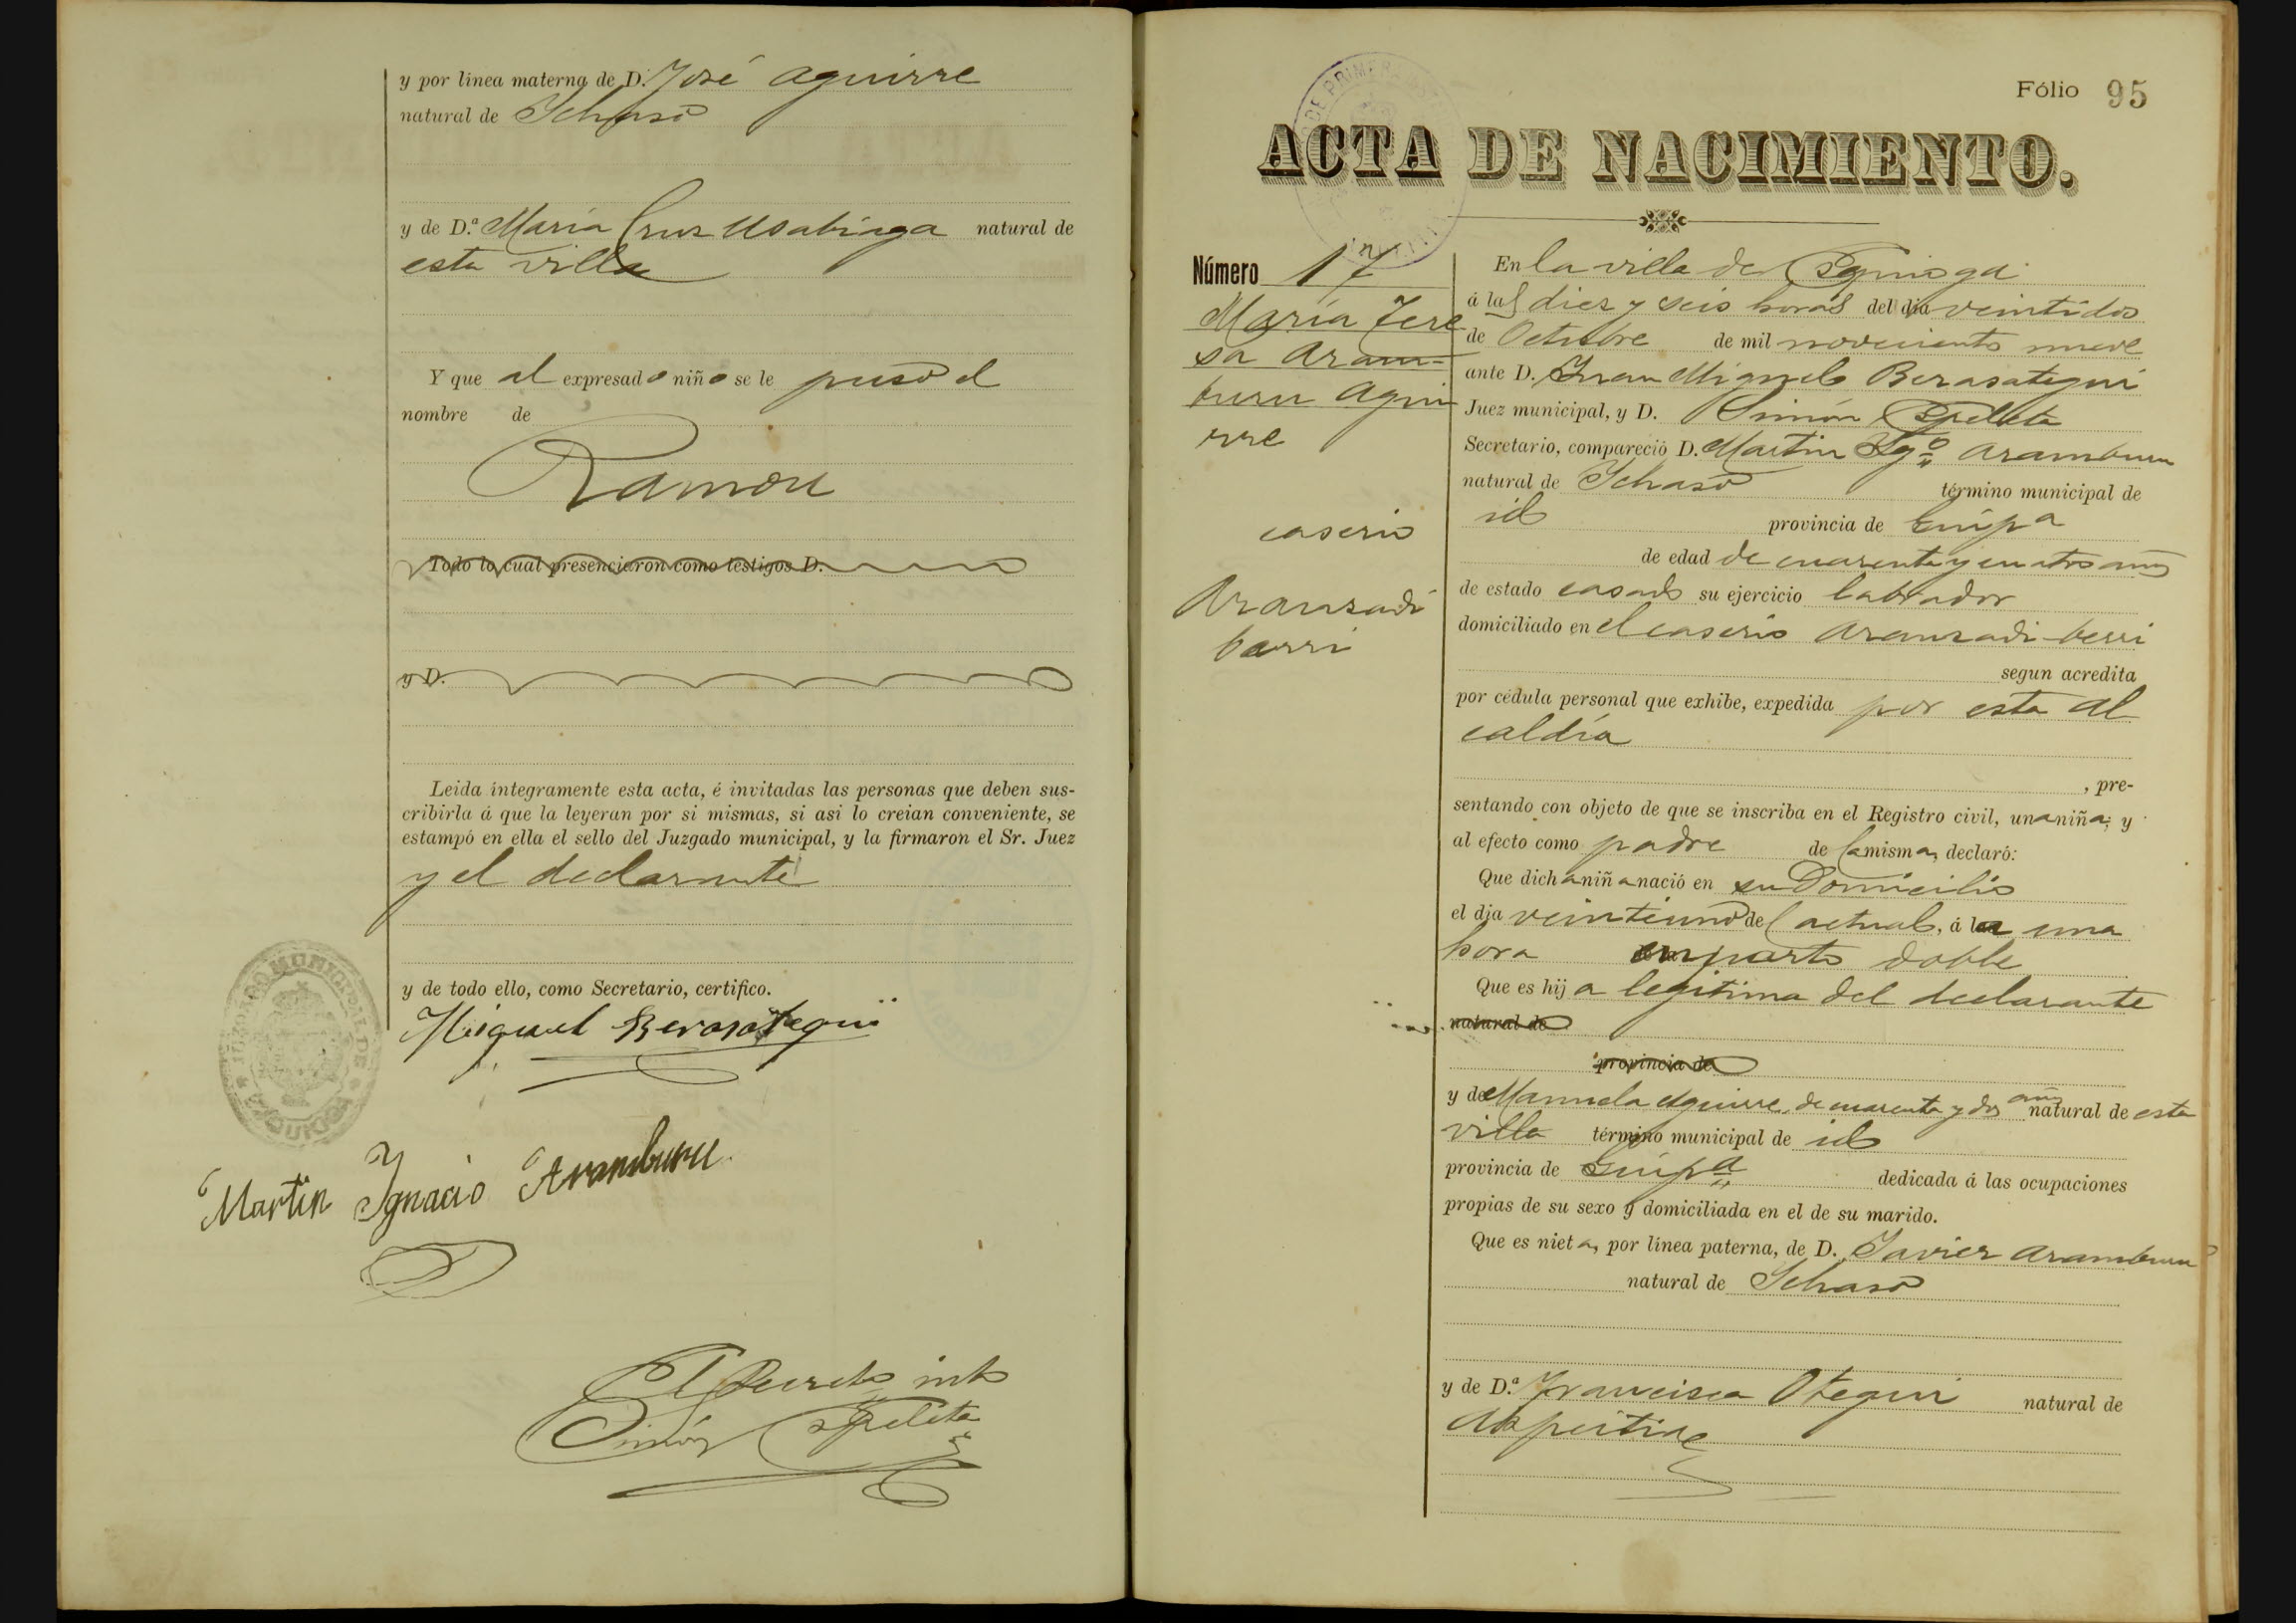 y por línea materna de D. José Aguirre
natural de Ichaso
y de D.ª María Cruz Usabiaga natural de
esta villa
Y que al expresado niño se le puso el
nombre de
Ramon
Todo lo cual presencieron como testigos D.
y D.
Leida íntegramente esta acta, é invitadas las personas que deben sus-
cribirla á que la leyeran por si mismas, si asi lo creian conveniente, se
estampó en ella el sello del Juzgado municipal, y la firmaron el Sr. Juez
y el declarante
y de todo ello, como Secretario, certifico.
JUZGADO MUNICIPAL DE
Miguel Berasategui
Martin Ignacio Aramburu
El Secreto into
Simón Ezpeleta
Fólio 95
DE PRIMERA
ACTA DE NACIMIENTO.
Número 17
María Tere
sa Aram-
buru Agui
rre
caserio
Aranzadi
berri
En la villa de Ezquioga
á las diez y seis horas del dia veintidos
de Octubre de mil novecientos nueve
ante D. Juan Miguel Berasategui
Juez municipal, y D. Simón Ezpeleta
Secretario, compareció D. Martin Igº Aramburu
natural de Ichaso término municipal de
id provincia de Guipª
de edad de cuarenta y cuatro años
de estado casado su ejercicio labrador
domiciliado en el caserio Aranzadi-berri
segun acredita
por cédula personal que exhibe, expedida por esta al
caldía
, pre-
sentando con objeto de que se inscriba en el Registro civil, una niña; y
al efecto como padre de la misma, declaró:
Que dicha niña nació en su Domicilio
el dia veintiuno del actual, á la una
hora en parto doble
Que es hija legitima del declarante
natural de
provincia de
y de Manuela Aguirre, de cuarenta y dos años natural de esta
villa término municipal de id
provincia de Guipª dedicada á las ocupaciones
propias de su sexo y domiciliada en el de su marido.
Que es nieta, por línea paterna, de D. Javier Aramburu
natural de Ichaso
y de D.ª Francisca Otegui natural de
Azpeitia